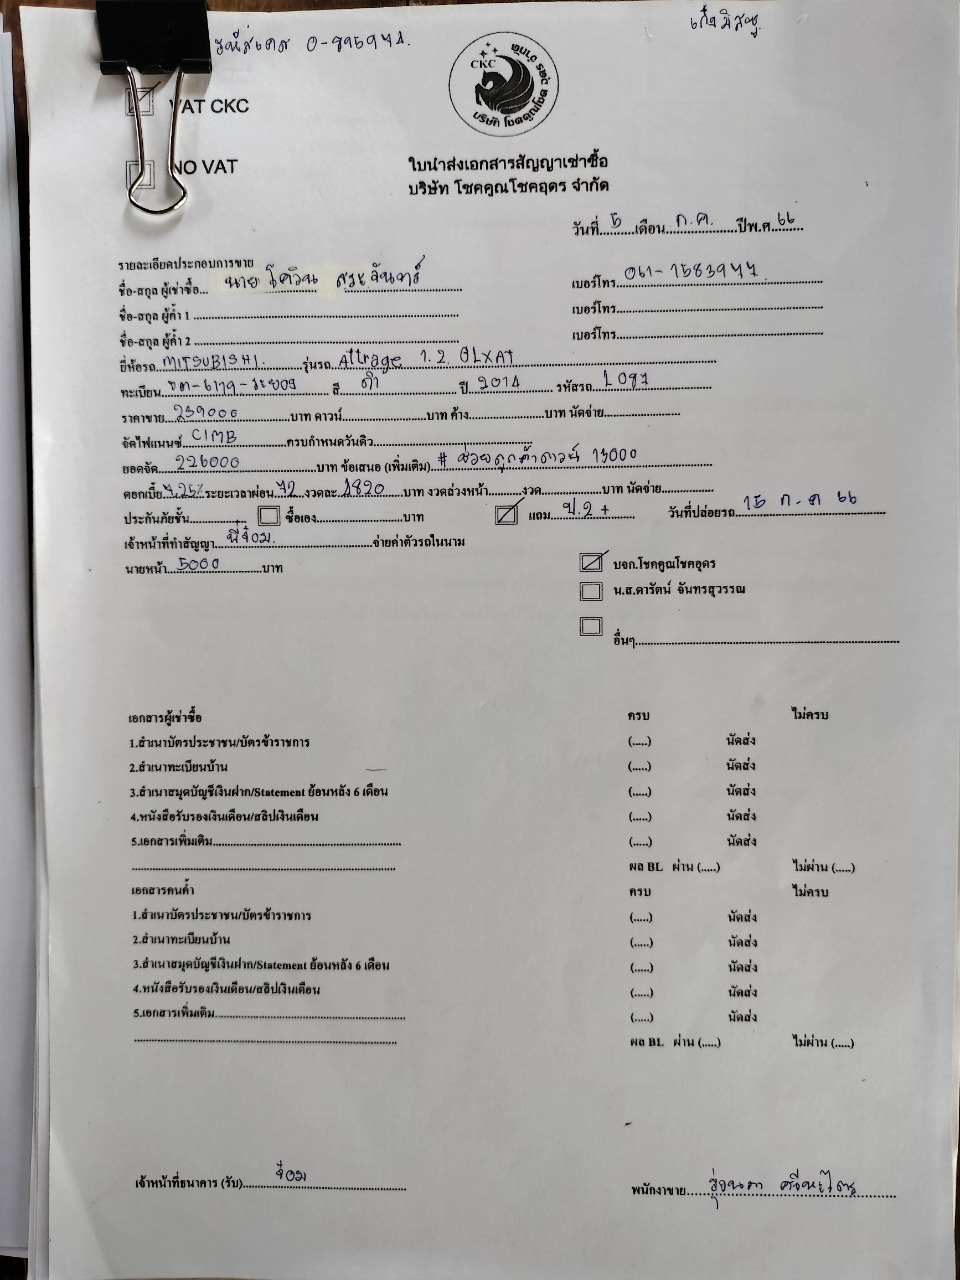 รหัสเคส 0-895974.
VAT CKC
CKC
บริษัท โชคคูณโชค อุดร จำกัด
NO VAT
ใบนำส่งเอกสารสัญญาเช่าซื้อ
บริษัท โชคคูณโชคอุดร จำกัด
วันที่ 5 เดือน ก.ค. ปีพ.ศ 66
รายละเอียดประกอบการขาย
ชื่อ-สกุล ผู้เช่าซื้อ... นาย โควิน สระจันทร์ เบอร์โทร 061-1583977
ชื่อ-สกุล ผู้ค้ำ 1 เบอร์โทร
ชื่อ-สกุล ผู้ค้ำ 2 เบอร์โทร
ยี่ห้อรถ MITSUBISHI. รุ่นรถ Attrage 1.2 GLXAT
ทะเบียน -6179-ระยอง สี ดำ ปี 2014 รหัสรถ L087
ราคาขาย 239000 บาท ดาวน์ บาท ค้าง บาท นัดจ่าย
จัดไฟแนนซ์ CIMB ครบกำหนดวันดิว
ยอดจัด 226000 บาท ข้อเสนอ (เพิ่มเติม) # ช่วยลูกค้าดาวน์ 13000
ดอกเบี้ย 7.25% ระยะเวลาผ่อน 72 งวดละ 4820 บาท งวดล่วงหน้า งวด บาท นัดจ่าย
ประกันภัยชั้น ซื้อเอง บาท แถม ป.2+ วันที่ปล่อยรถ 15 ก.ค 66
เจ้าหน้าที่ทำสัญญา พี่จ๋อม. จ่ายค่าตัวรถในนาม
นายหน้า 5000 บาท บจก.โชคคูณโชคอุดร
น.ส.ดารัตน์ จันทรสุวรรณ
อื่นๆ
เอกสารผู้เช่าซื้อ ครบ ไม่ครบ
1.สำเนาบัตรประชาชน/บัตรข้าราชการ (.....) นัดส่ง
2.สำเนาทะเบียนบ้าน (.....) นัดส่ง
3.สำเนาสมุดบัญชีเงินฝาก/Statement ย้อนหลัง 6 เดือน (.....) นัดส่ง
4.หนังสือรับรองเงินเดือน/สลิปเงินเดือน (.....) นัดส่ง
5.เอกสารเพิ่มเติม (.....) นัดส่ง
ผล BL ผ่าน (.....) ไม่ผ่าน (.....)
เอกสารคนค้ำ ครบ ไม่ครบ
1.สำเนาบัตรประชาชน/บัตรข้าราชการ (.....) นัดส่ง
2.สำเนาทะเบียนบ้าน (.....) นัดส่ง
3.สำเนาสมุดบัญชีเงินฝาก/Statement ย้อนหลัง 6 เดือน (.....) นัดส่ง
4.หนังสือรับรองเงินเดือน/สลิปเงินเดือน (.....) นัดส่ง
5.เอกสารเพิ่มเติม (.....) นัดส่ง
ผล BL ผ่าน (.....) ไม่ผ่าน (.....)
เจ้าหน้าที่ธนาคาร (รับ) จ๋อม พนักงาขาย